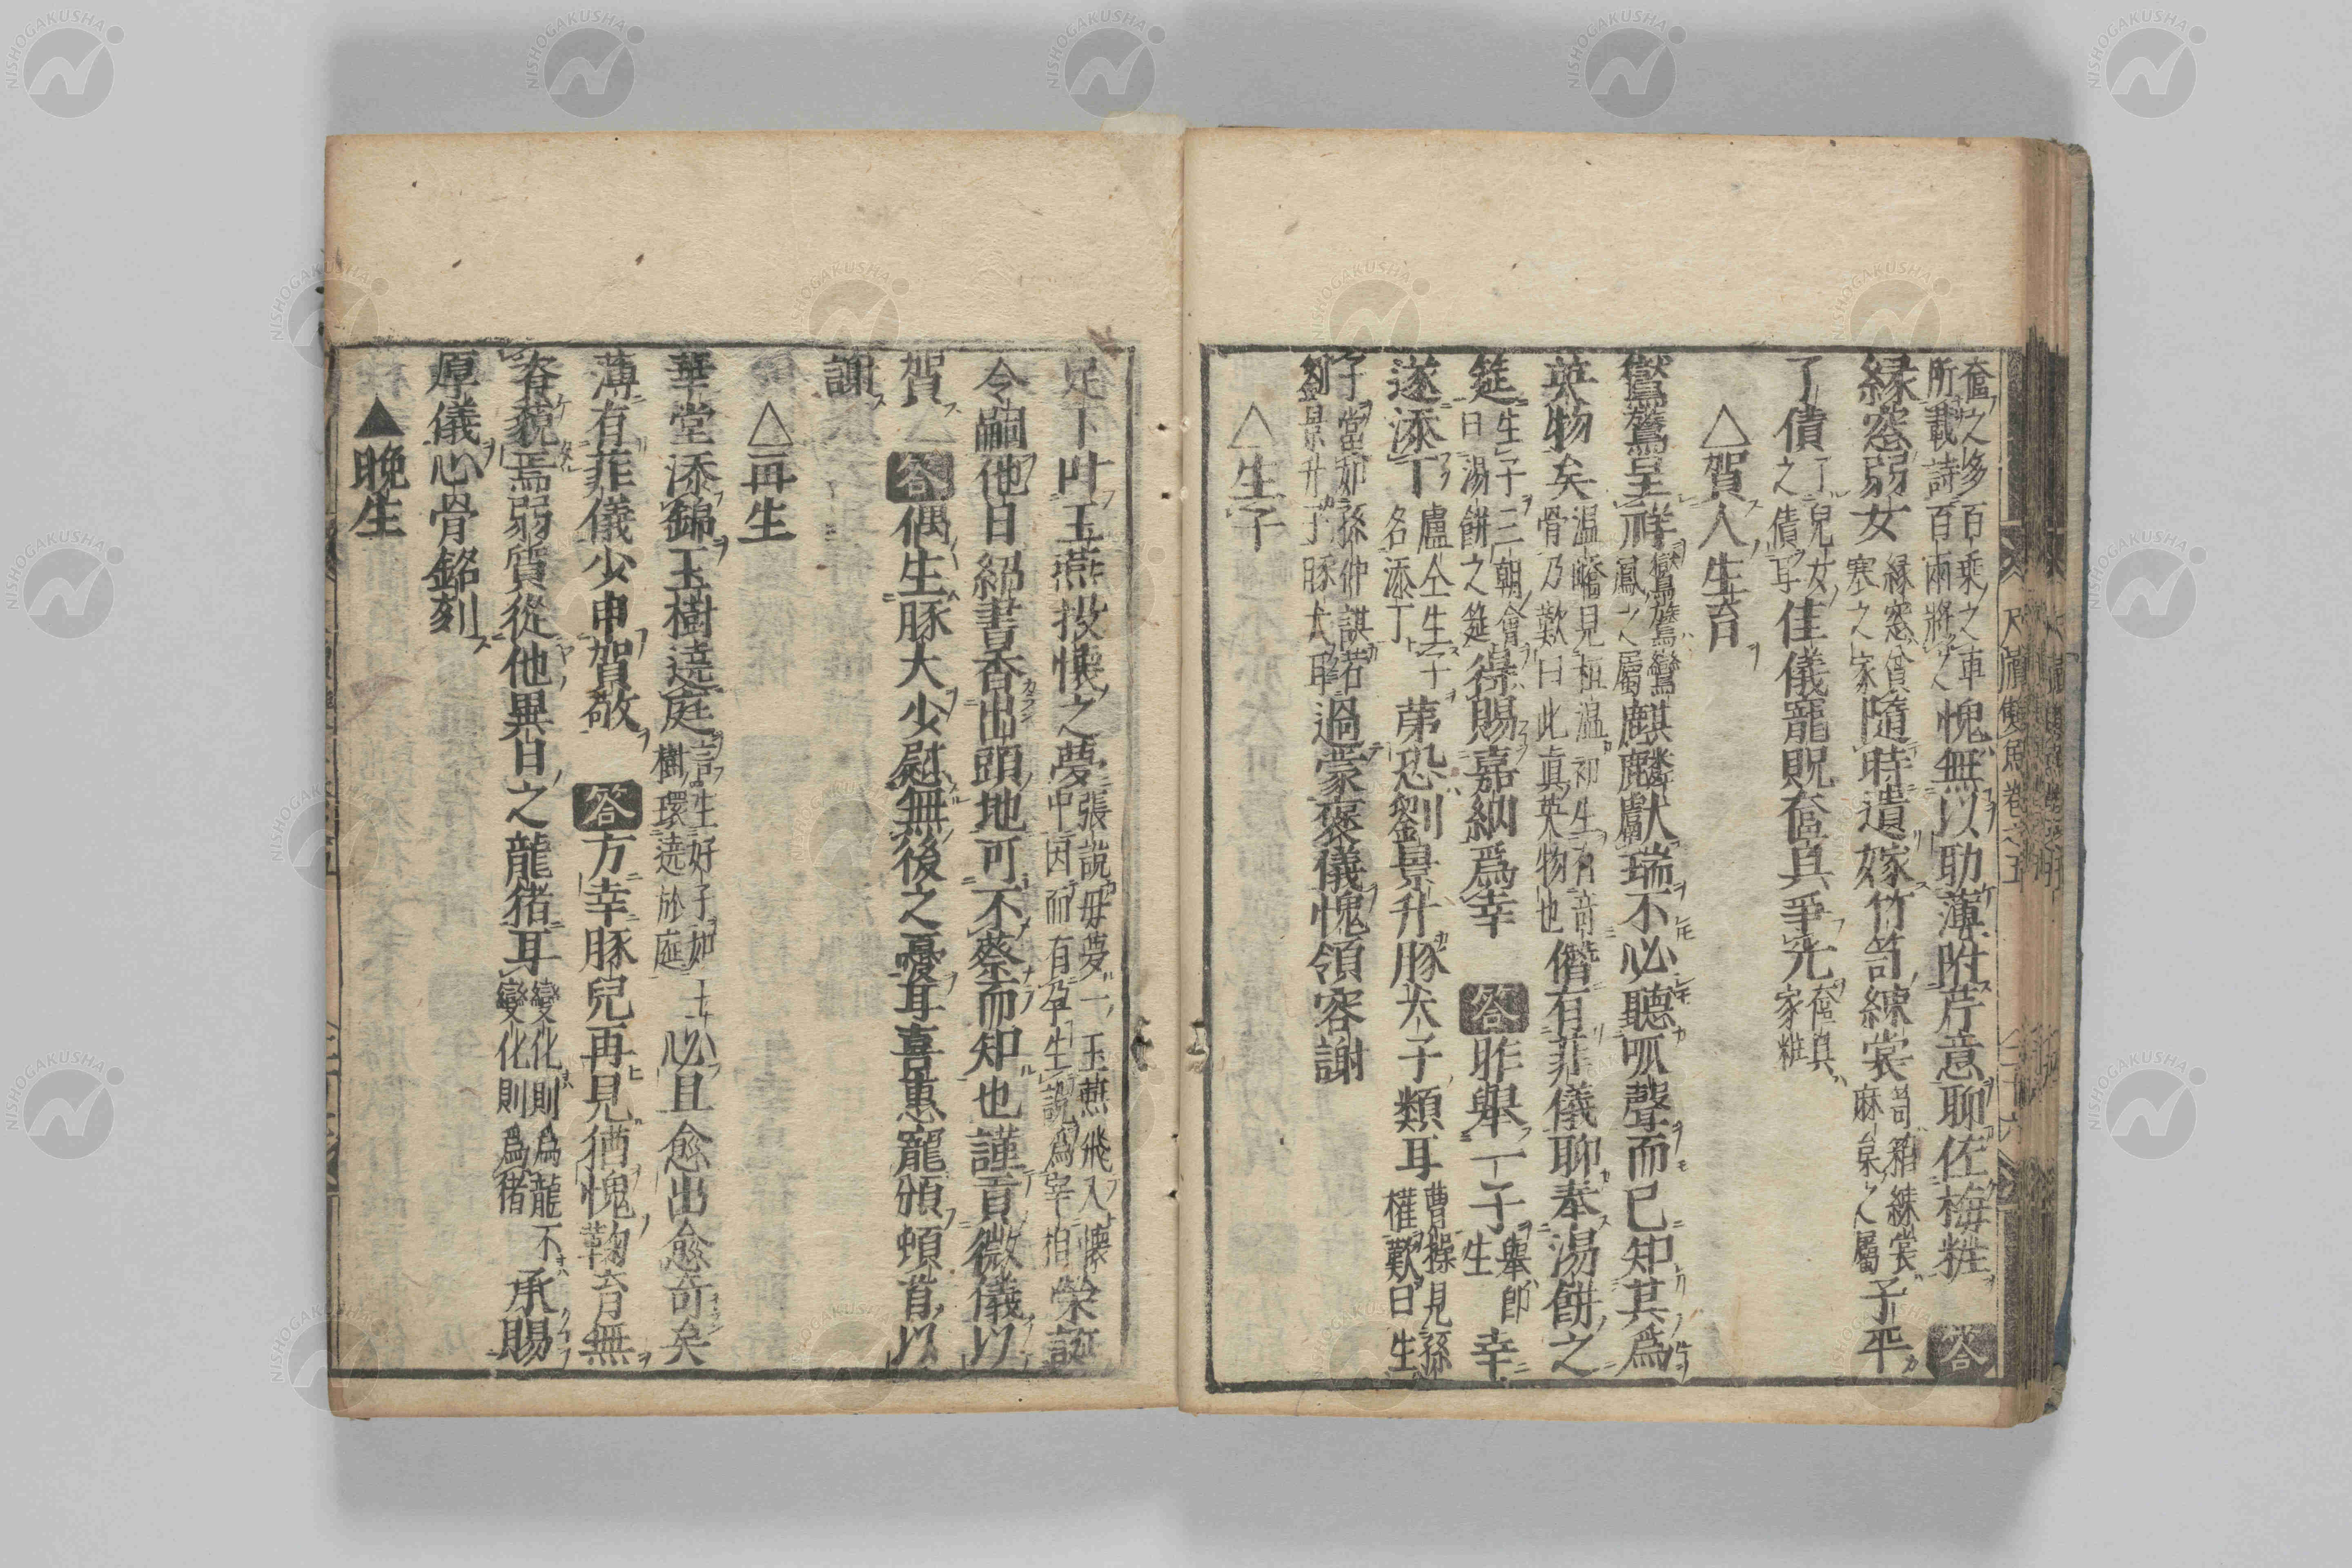 奩之多百乘之車
所載詩百兩將之愧無以助薄附芹意聊佐梅粧 答
緣窓弱女緣窓貧
寒之家隨時遣嫁竹笥練裳笥箱練裳
麻枲之屬子平
了債了兒女
之債耳佳儀寵貺奩具爭光奩具
家粧
△賀人生育
鸑鷟呈祥鸑鷟鸞
鳳之屬麒麟獻瑞不必聽呱聲而已知其爲
英物矣温嶠見桓温初生有奇
骨乃歎曰此眞英物也僭有菲儀聊奉湯餅之
筵生子三朝會
曰湯餅之筵得賜嘉納爲幸 答 昨舉一子舉即
生幸
遂添丁盧仝生子
名添丁苐恐劉景升豚犬子類耳曹操見孫
權歎曰生
子當如孫仲謀若
劉景升子豚犬耳過蒙褒儀愧領容謝
△生子
足下叶玉燕投懷之夢張說母夢一玉燕飛入懷
中因而有孕生說爲宰相榮誕
令嗣他日紹書香出頭地可不蔡而知也謹貢微儀以
賀 答 偶生豚犬少慰無後之憂耳喜惠寵頒頓首以
謝
△再生
華堂添錦玉樹遶庭言生好子如玉
樹環遶於庭必且愈出愈奇矣
薄有菲儀少申賀敬 答 方幸豚兒再見猶愧鞠育無
脊藐焉弱質從他異日之龍猪耳變化則爲龍不
變化則爲猪承賜
厚儀心骨銘刻
▲晩生
尺牘雙魚卷之五
二十六